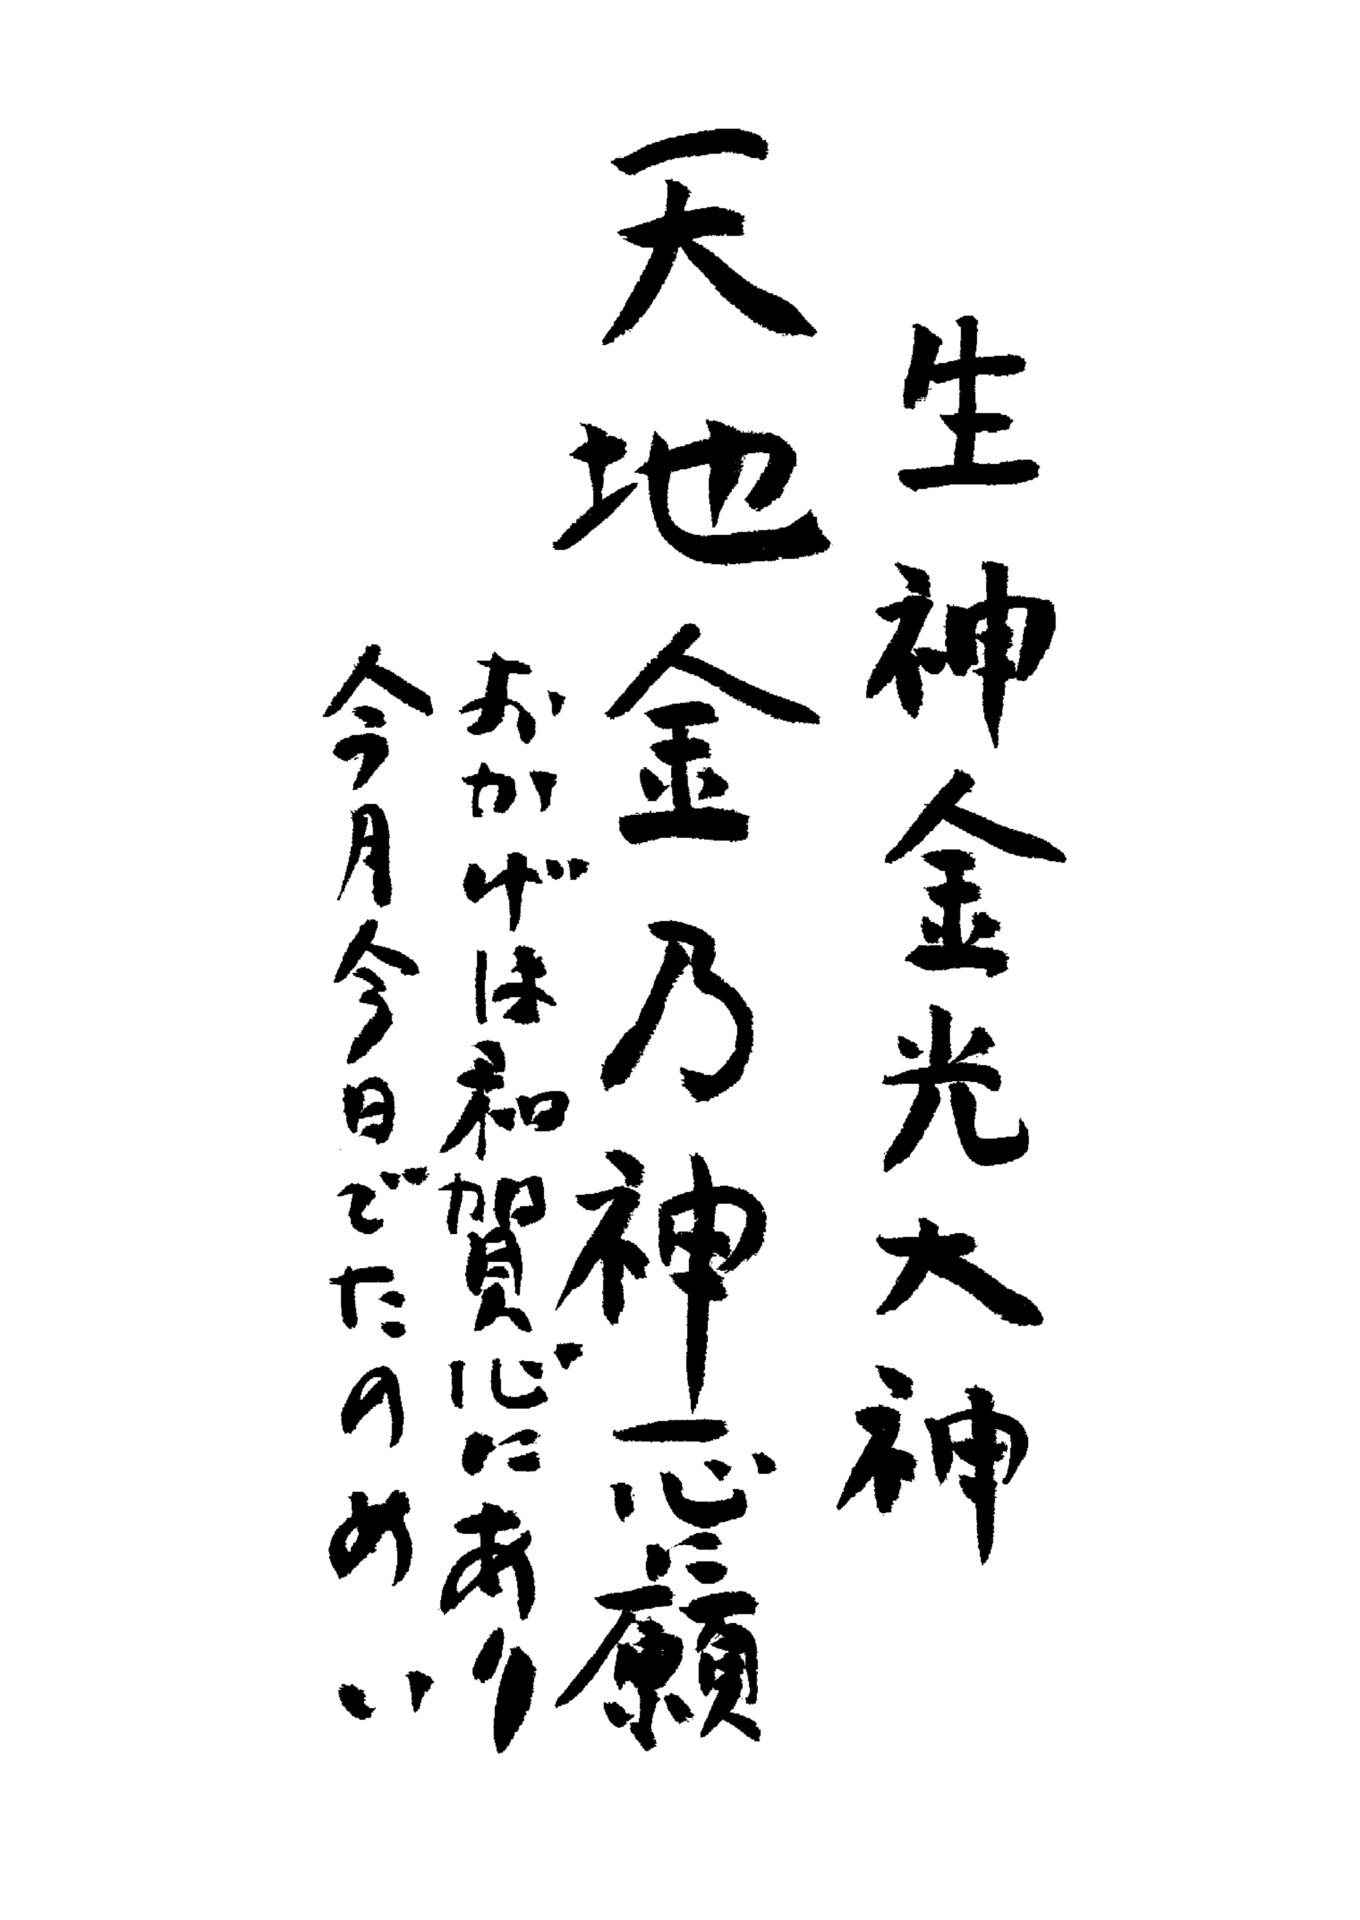 生神金光大神
天地金乃神一心に願
おかげは和賀心にあり
今月今日でたのめい